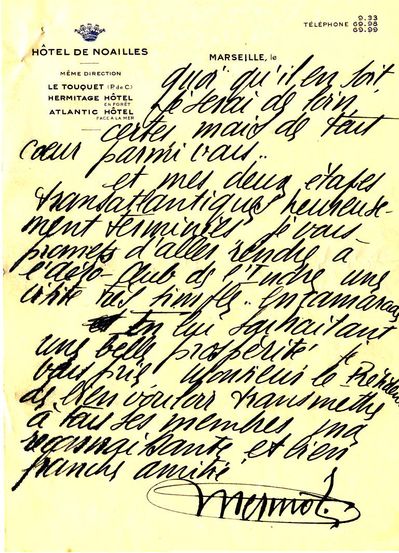 9.33
TÉLÉPHONE 69.98
69.99
HÔTEL DE NOAILLES
MARSEILLE, le
MÊME DIRECTION
LE TOUQUET (P. de C.)
HERMITAGE HÔTEL
EN FORÊT
ATLANTIC HÔTEL
FACE A LA MER
quoi qu'il en soit
je serai de loin
certes mais de tout
coeur parmi vous..
et mes deux étapes
transatlantiques heureuse-
ment terminées je vous
promets d'aller rendre à
l'aéro-club de l'Indre une
visite très simple.. en camarade
et en lui souhaitant
une belle prospérité je
vous prie Monsieur le Président
de bien vouloir transmettre
à tous ses membres ma
reconnaissante et bien
franche amitié
Mermoz